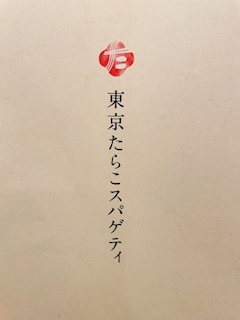 た
東京たらこスパゲティ